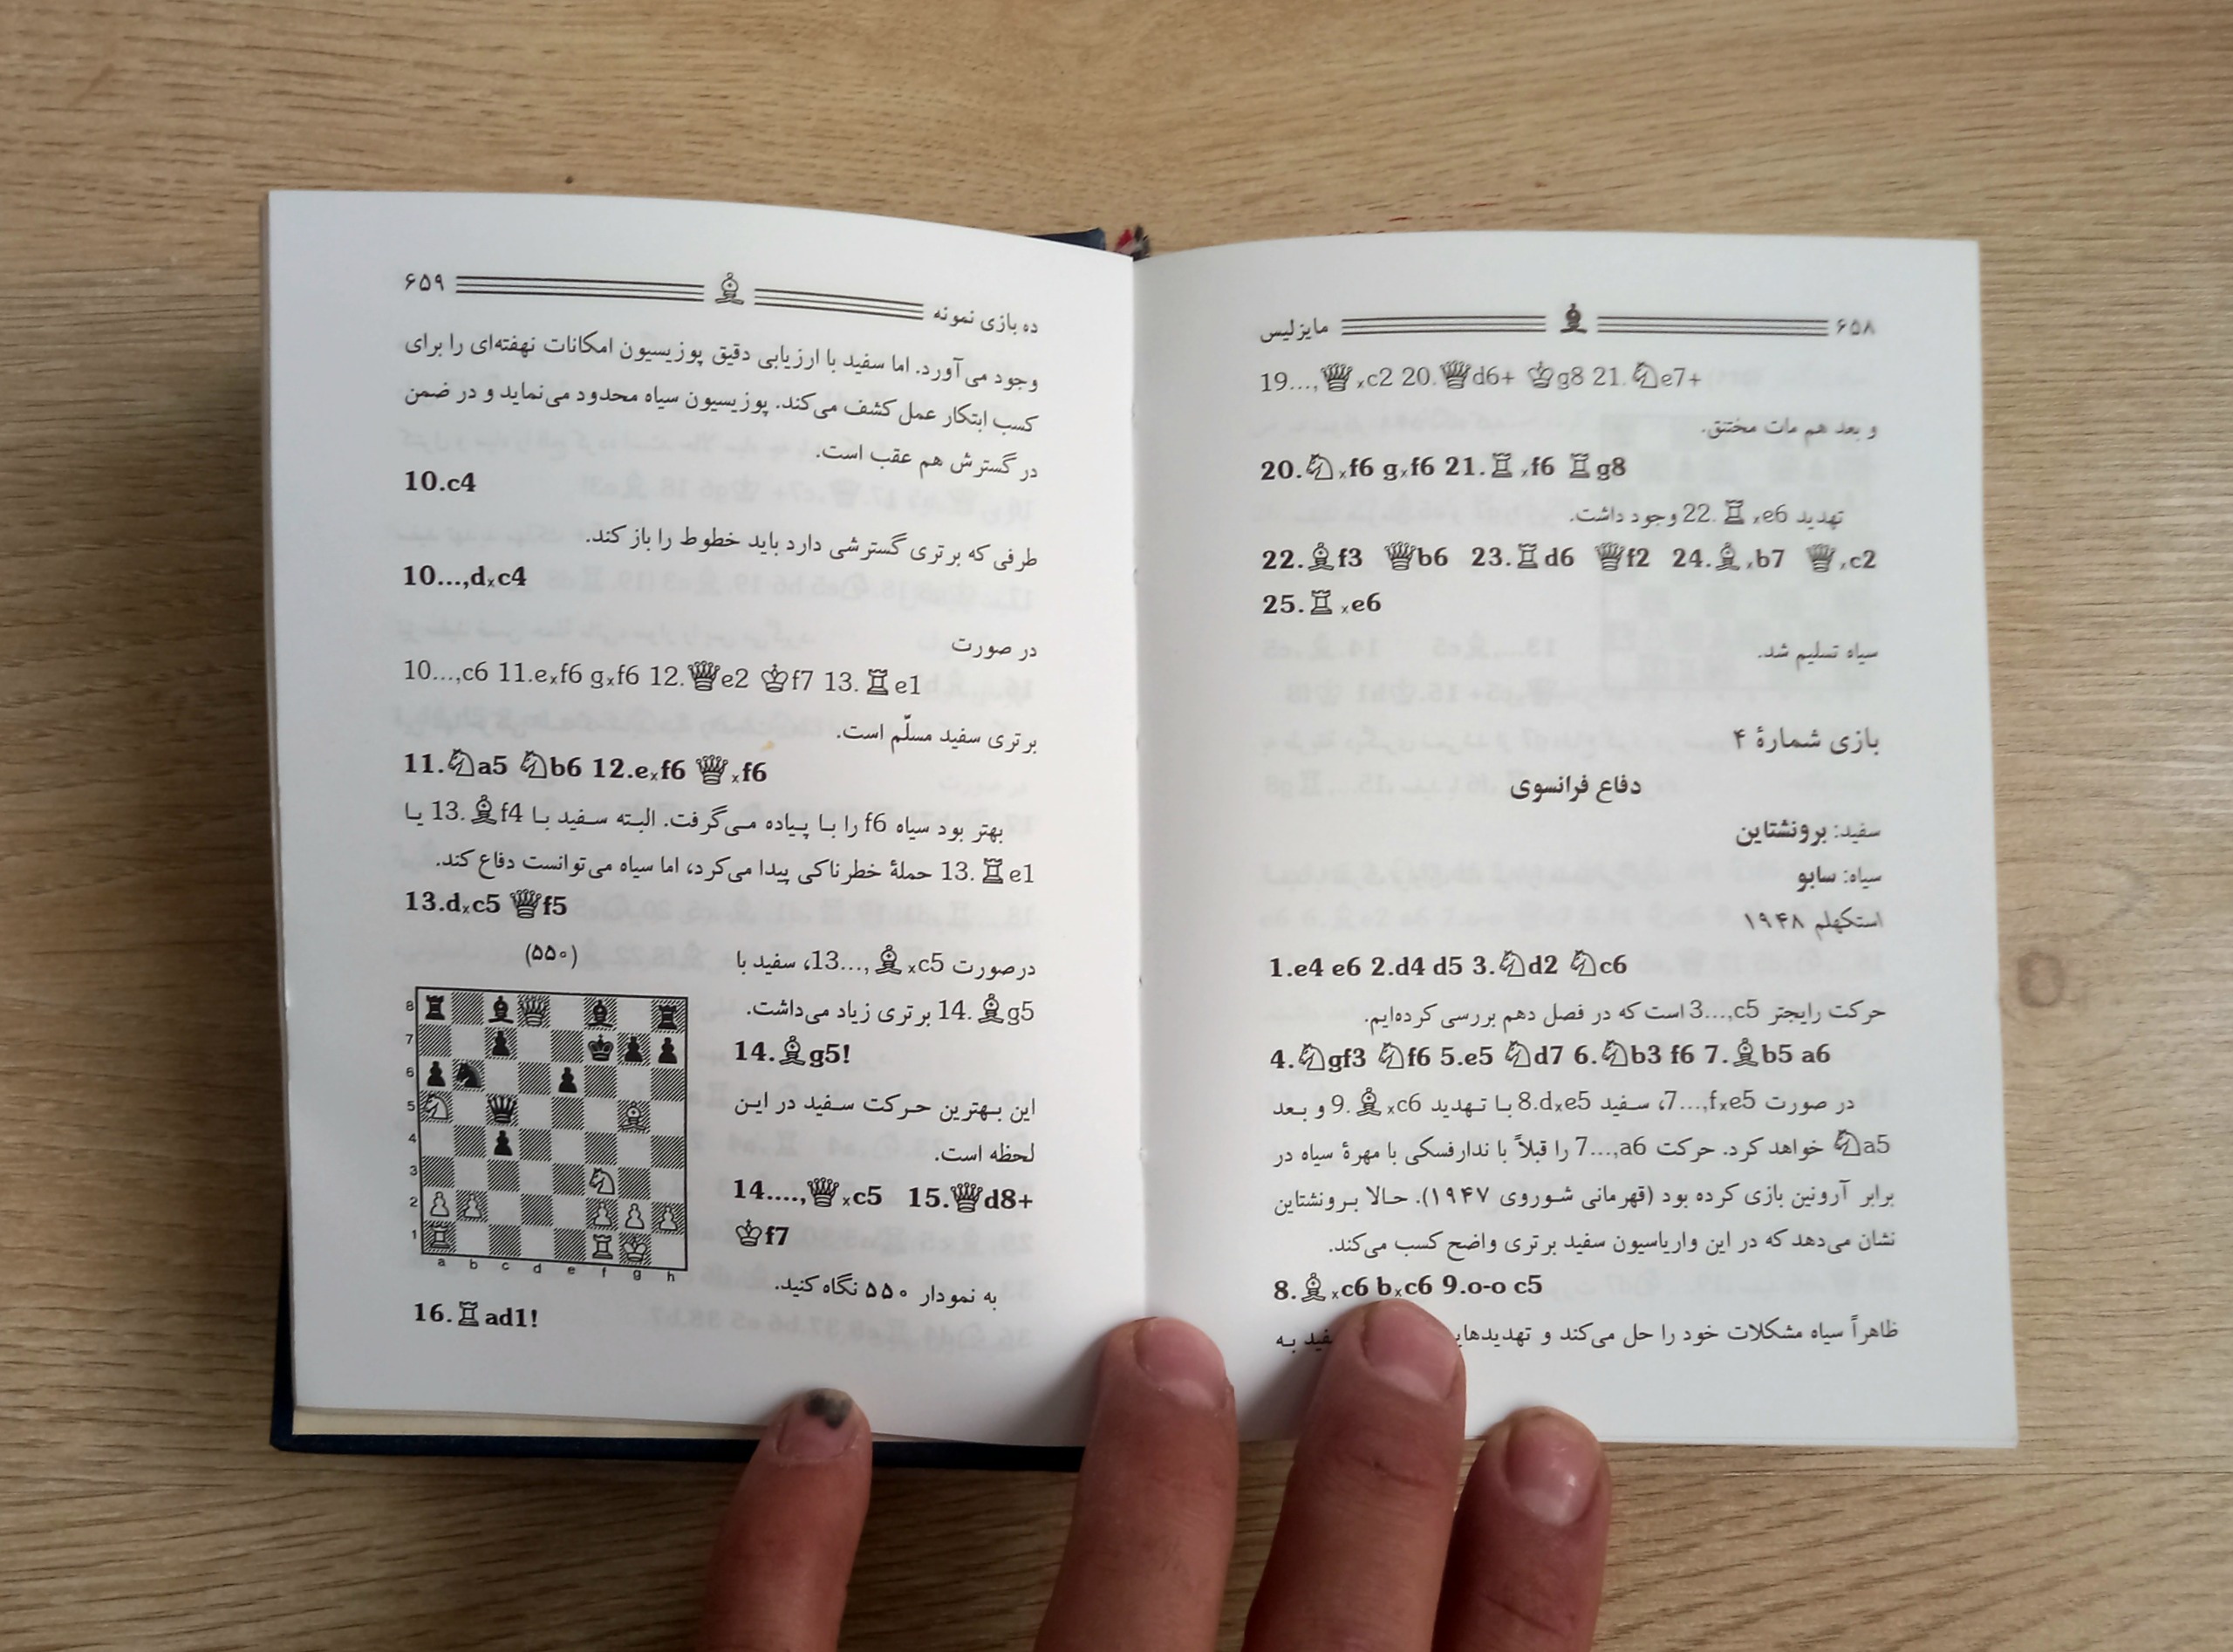 ۶۵۸ مایزلیس
19...,♕xc2 20.♕d6+ ♔g8 21.♘e7+
و بعد هم مات مختنق.
20.♘xf6 gxf6 21.♖xf6 ♖g8
تهدید 22.♖xe6 وجود داشت.
22.♗f3 ♕b6 23.♖d6 ♕f2 24.♗xb7 ♕xc2
25.♖xe6
سیاه تسلیم شد.
بازی شمارهٔ ۴
دفاع فرانسوی
سفید: برونشتاین
سیاه: سابو
استکهلم ۱۹۴۸
1.e4 e6 2.d4 d5 3.♘d2 ♘c6
حرکت رایجتر 3...,c5 است که در فصل دهم بررسی کرده‌ایم.
4.♘gf3 ♘f6 5.e5 ♘d7 6.♘b3 f6 7.♗b5 a6
در صورت 7...,fxe5، سفید 8.dxe5 با تهدید 9.♗xc6 و بعد
♘a5 خواهد کرد. حرکت 7...,a6 را قبلاً با ندارفسکی با مهرهٔ سیاه در
برابر آرونین بازی کرده بود (قهرمانی شوروی ۱۹۴۷). حالا برونشتاین
نشان می‌دهد که در این واریاسیون سفید برتری واضح کسب می‌کند.
8.♗xc6 bxc6 9.o-o c5
ظاهراً سیاه مشکلات خود را حل می‌کند و به
ده بازی نمونه ۶۵۹
وجود می‌آورد. اما سفید با ارزیابی دقیق پوزیسیون امکانات نهفته‌ای را برای
کسب ابتکار عمل کشف می‌کند. پوزیسیون سیاه محدود می‌نماید و در ضمن
در گسترش هم عقب است.
10.c4
طرفی که برتری گسترشی دارد باید خطوط را باز کند.
10...,dxc4
در صورت
10...,c6 11.exf6 gxf6 12.♕e2 ♔f7 13.♖e1
برتری سفید مسلّم است.
11.♘a5 ♘b6 12.exf6 ♕xf6
بهتر بود سیاه f6 را با پیاده می‌گرفت. البته سفید با 13.♗f4 یا
13.♖e1 حملهٔ خطرناکی پیدا می‌کرد، اما سیاه می‌توانست دفاع کند.
13.dxc5 ♕f5
درصورت 13...,♗xc5، سفید با
14.♗g5 برتری زیاد می‌داشت.
14.♗g5!
این بهترین حرکت سفید در این
لحظه است.
14....,♕xc5 15.♕d8+
♔f7
به نمودار ۵۵۰ نگاه کنید.
(۵۵۰)
8
7
6
5
4
3
2
1
a b c d e f g h
16.♖ad1!